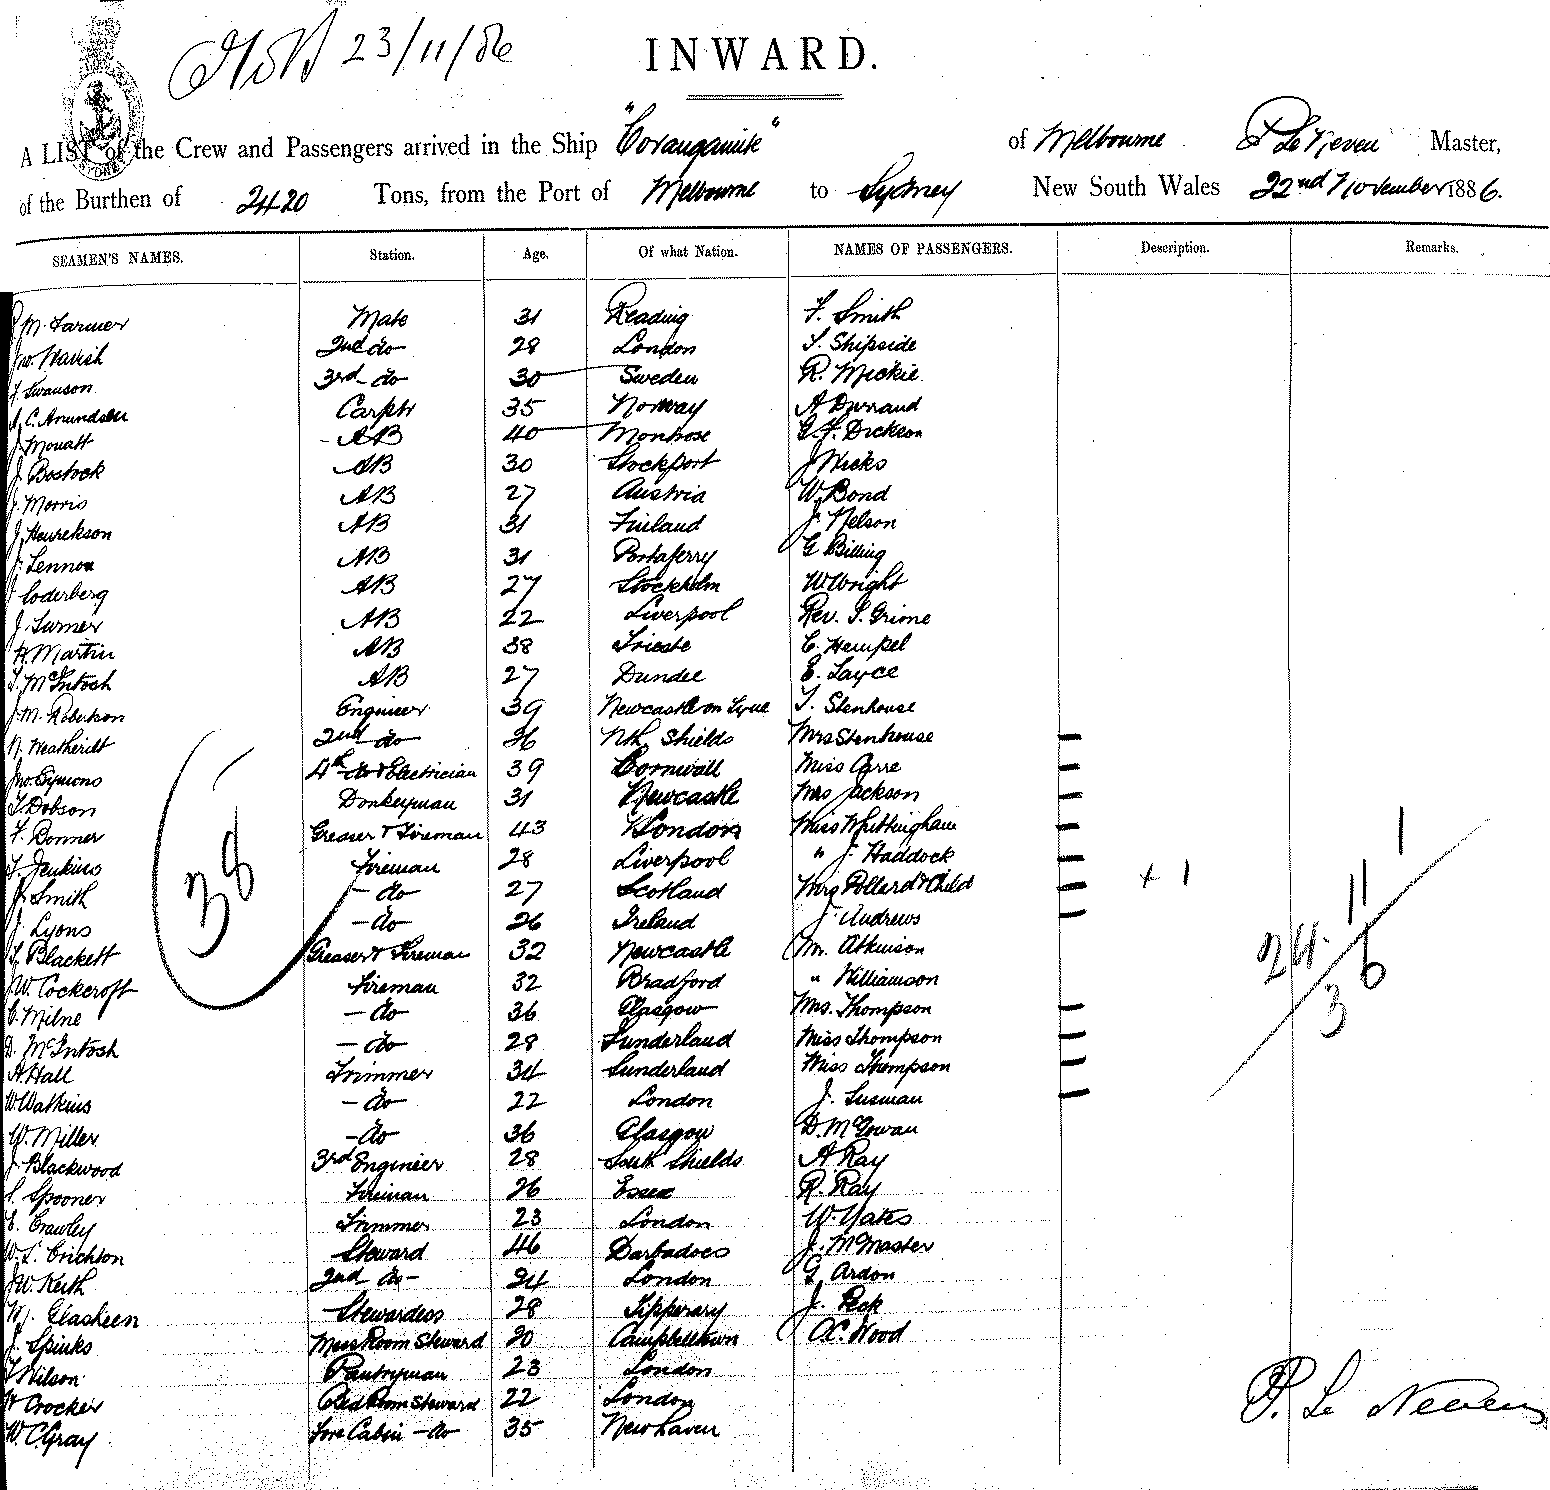 23/11/86
INWARD.
A LIST of the Crew and Passengers arrived in the Ship "Coranganite" of Melbourne P Le Neveu Master,
of the Burthen of 2420 Tons, from the Port of Melbourne to Sydney New South Wales 22nd November 1886.
SEAMEN'S NAMES. Station. Age. Of what Nation. NAMES OF PASSENGERS. Description. Remarks.
M. Farmer Mate 31 Reading F. Smith
Jno. Wavish 2nd do 28 London T. Shipside
Swanson 3rd do 30 Sweden R. Mickie
C. Amundsen Carptr 35 Norway A Durrand
J. Mouatt AB 40 Montrose G. F. Dickson
J. Bostock AB 30 Stockport J Wicks
J. Morris AB 27 Austria W. Bond
J. Henrekson AB 31 Finland J. Nelson
J. Lennox AB 31 Portaferry G Billing
Soderberg AB 27 Stockholm W Wright
J. Turner AB 22 Liverpool Rev. S. Grime
H. Martin AB 38 Trieste C. Hempel
T. McIntosh AB 27 Dundee E. Layce
J. M. Robertson Engineer 39 Newcastle on Tyne T. Stenhouse
N. Weatherilt 2nd do 36 Nth Shields Mrs Stenhouse
Jno. Symons 4th do & Electrician 39 Cornwall Miss Carre
T. Dobson Donkeyman 31 Newcastle Mrs Jackson
F. Bonner Greaser & Fireman 43 London Miss Whittingham
T. Jenkins Fireman 28 Liverpool " J. Haddock
J. Smith - do 27 Scotland Mrs Pollard & Child + 1
J. Lyons - do 26 Ireland J. Andrews
T. Blackett Greaser & Fireman 32 Newcastle Mr. Atkinson
J.W. Cockcroft Fireman 32 Bradford " Williamson
C. Milne - do 36 Glasgow Mrs. Thompson
D. McIntosh - do 28 Sunderland Miss Thompson
A. Hall Trimmer 34 Sunderland Miss Thompson
W. Watkins - do 22 London J. Susman
W. Miller - do 36 Glasgow D. McGowan
J. Blackwood 3rd Engineer 28 South Shields A Ray
S. Spooner Fireman 26 Essex R. Ray
E. Crawley Trimmer 23 London W. Yates
W. S. Crichton Steward 46 Barbadoes J. McMaster
J.W. Keith 2nd do - 24 London G Ardon
M. Glasheen Stewardess 28 Tipperary J. Peck
J. Spinks Mess Room Steward 20 Campbelltown A.C. Wood
T Wilson Pantryman 23 London
W Crocker Bed Room Steward 22 London
W. C. Gray Fore Cabin - do 35 Newhaven
38
1
11
24. 6
3
P. Le Neveu